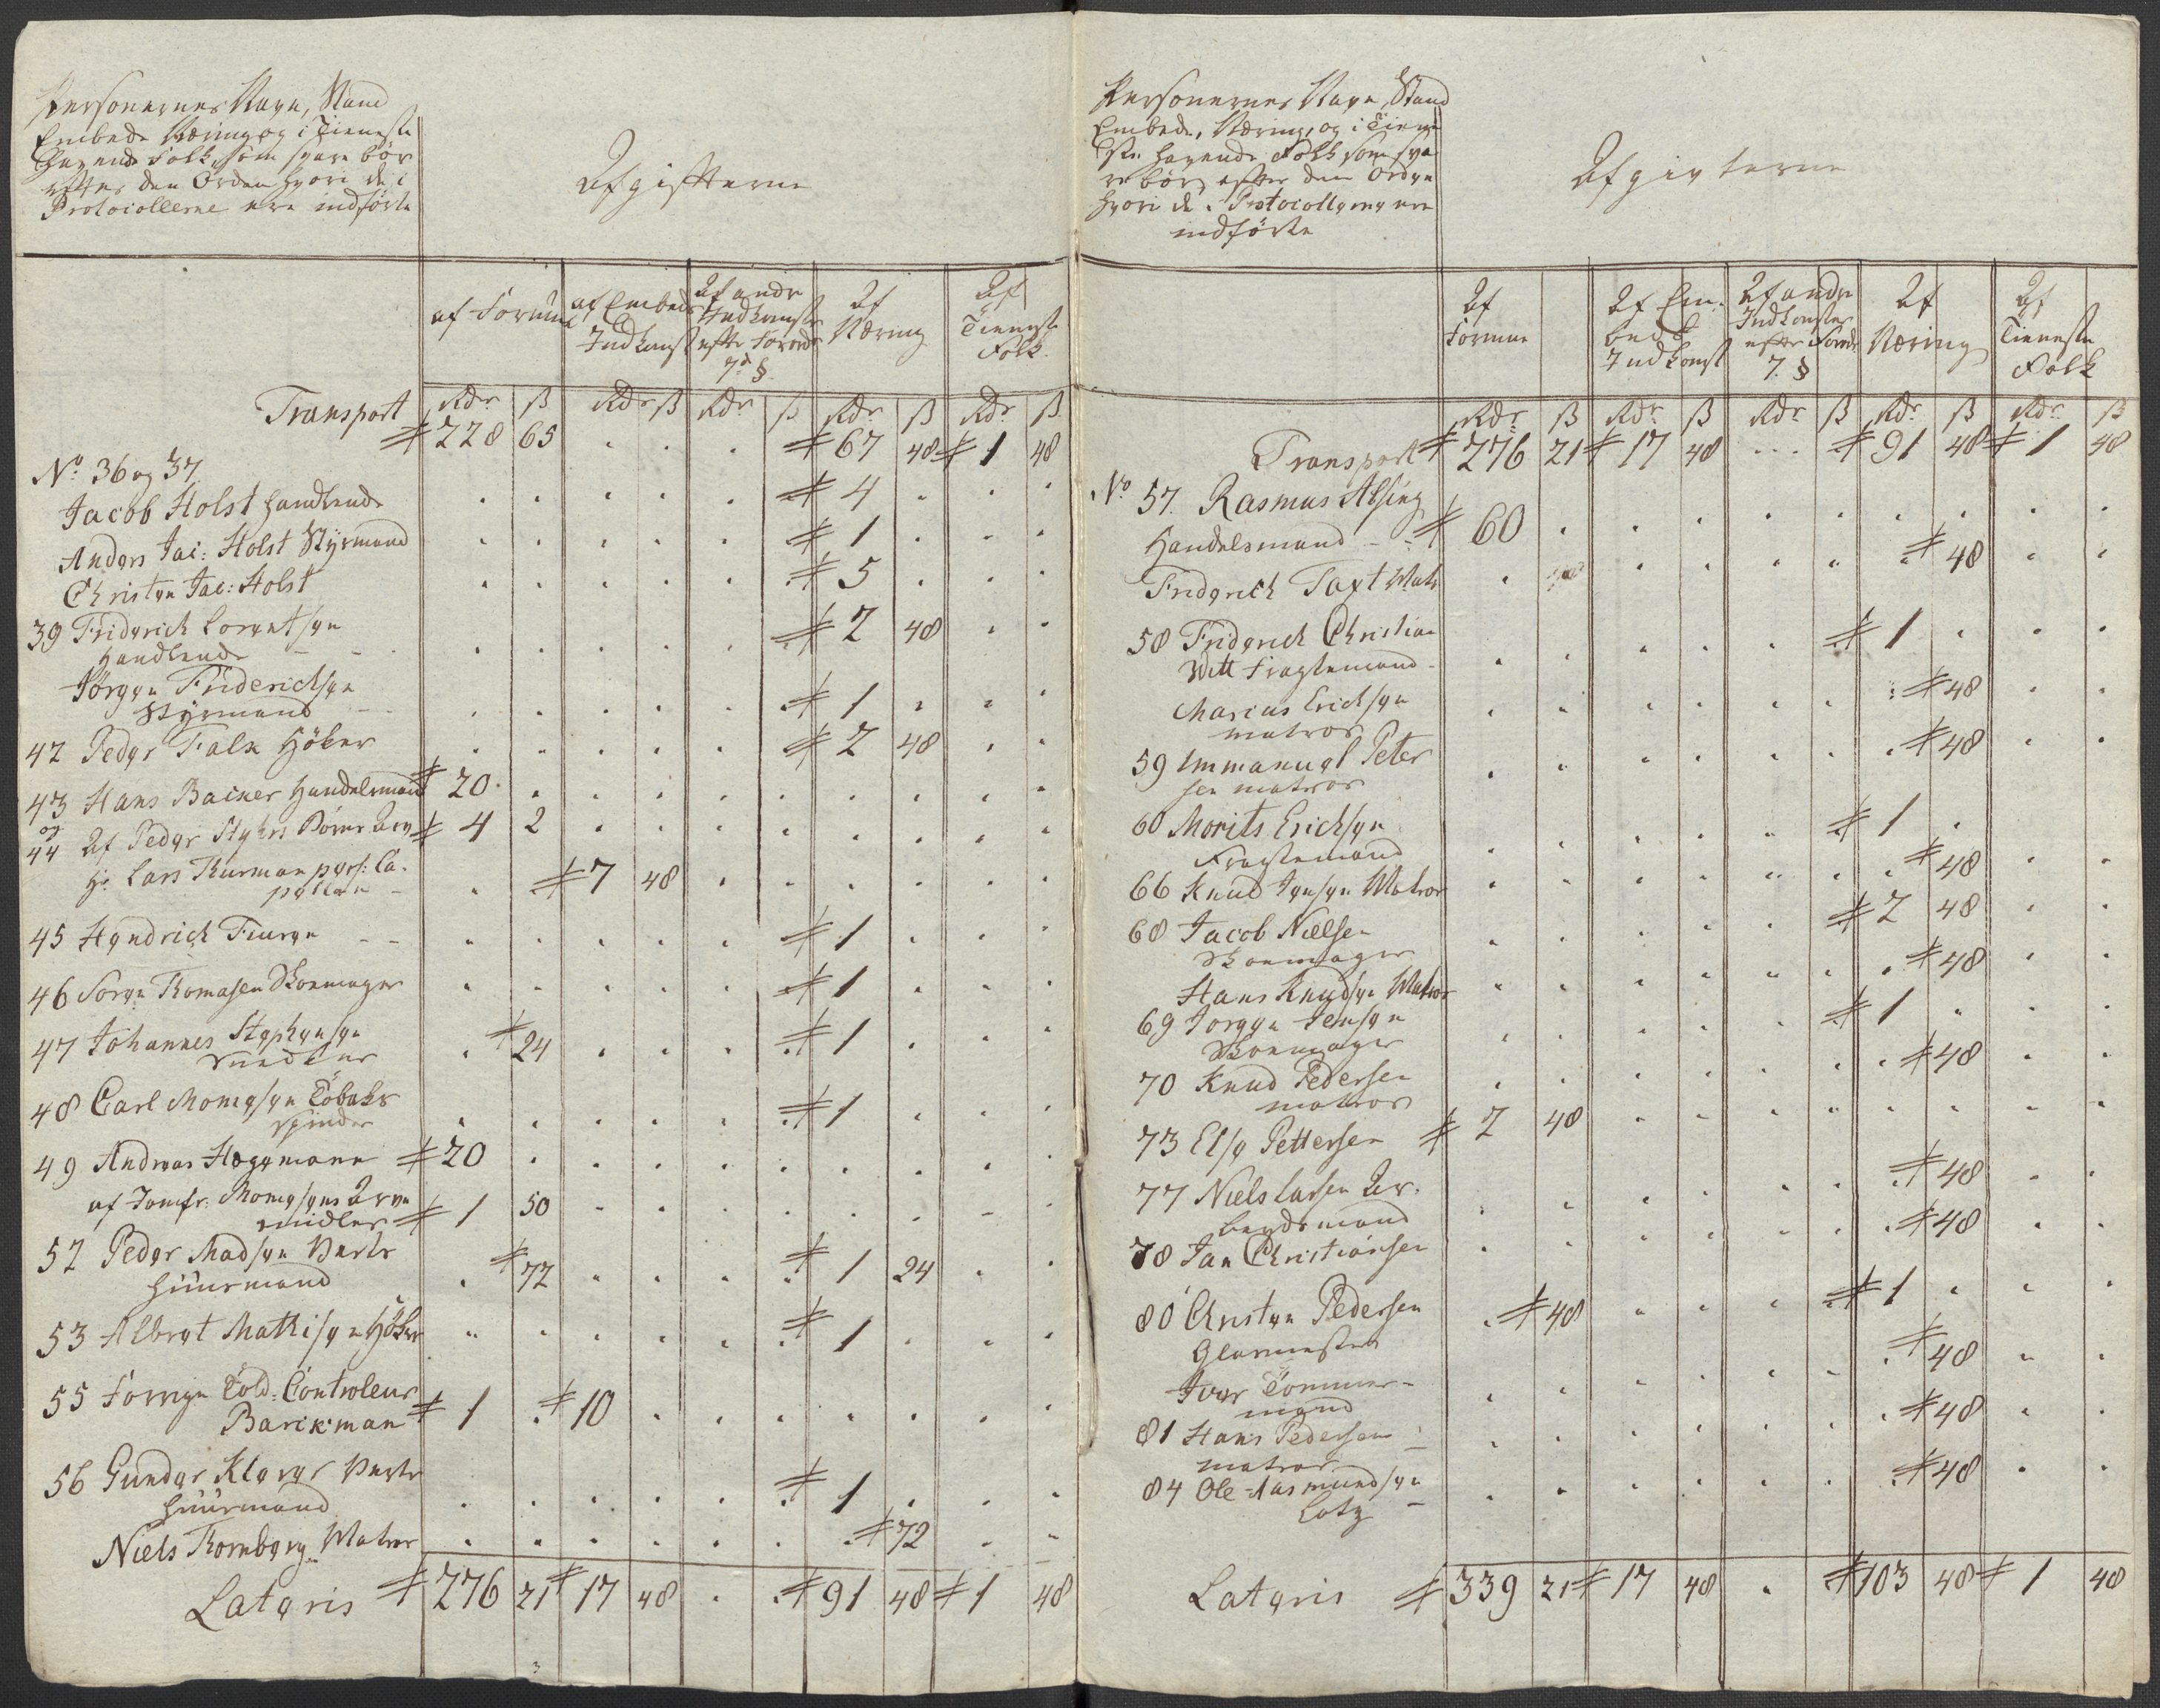 Personernes Navn, Stand
Embede Næring og i Tieneste
havende Folk, som svare bör
efter den Orden hvori de i
Protocollerne ere indförte
Afgifterne
af Formue
af Embeds Indkomst
Af andre Indkomster efter Forordn: 7de §
Af Næring
Af Tieneste Folk
Rdr ß Rdr ß Rdr ß Rdr ß Rdr ß
Transport # 228 65 . . . # 67 48 # 1 48
No. 36 og 37
Jacob Holst Handlende . . . . . # 4 . . .
Anders Jac: Holst Styrmand . . . . . # 1 . . .
Christen Jac: Holst . . . . . # 5 . . .
39 Friderich Lorentsen
Handlende . . . . . # 2 48 . .
Jörgen Friderichsen
Styrmand . . . . . # 1 . . .
42 Peder Falk Höker . . . . . # 2 48 . .
43 Hans Backer Handelsmand # 20 . . . . . . . . .
og
44 Af Peder Börns Arv # 4 2 . . . . . . . .
Hr. Lars Thurman pers: Ca-
pellan . . # 7 48 . . . . . .
45 Hendrich . . . . . # 1 . . .
46 Sören Thomasen Skoemager . . . . . # 1 . . .
47 Johannes Stephensen
Snedker . # 24 . . . # 1 . . .
48 Carl Monsesen Tobaks
spinder . . . . . # 1 . . .
49 Andreas Heggemann # 20 . . . . . . . . .
af Jomfr: Monsesens Arve
midler # 1 50 . . . . . . . .
52 Peder Madsen Verts
huusmand . # 72 . . . # 1 24 . .
53 Albret Mathisen Höker . . . . . # 1 . . .
55 Told: Controleur
Barikman # 1 . # 10 . . . . . . .
56 Gunder Klever Verts
huusmand . . . . . # 1 . . .
Niels Tornberg Matros . . . . . . # 72 . .
Lateris # 276 21 # 17 48 . . # 91 48 # 1 48
Personernes Navn, Stand
Embede, Næring, og i Tiene
ste havende Folk som sva
re bör efter den Orden
hvori de i Protocollerne ere
indförte
Afgivterne
Af Formue
Af Em- beds Indkomst
Af andre Indkomster efter Forordn 7 §
Af Næring
Af Tieneste Folk
Rdr ß Rdr ß Rdr ß Rdr ß Rdr ß
Transport # 276 21 # 17 48 ... # 91 48 # 1 48
No 57. Rasmus Alsing
Handelsmand # 60 . . . . . . . . .
Friderich Taxt Matr . . . . . # 48 . .
58 Friderich Christian
Witt Fragtemand . . . . . # 1 . . .
Marius Erichsen
matros . . . . . . # 48 . .
59 Immanuel Peter
sen matros . . . . . . # 48 . .
60 Morits Erichsen
Fragtemand . . . . . # 1 .
66 Knud Jensen Matros . . . . . . # 48 . .
68 Jacob Nielsen
Skoemager . . . . . # 2 48 . .
Hans Knudsen Matros . . . . . . # 48 . .
69 Jörgen Jensen
Skoemager . . . . . # 1 . . .
70 Knud Pedersen
matros . . . . . . # 48 . .
73 Else Pettersen # 2 48 . . . . . . . .
77 Niels Larsen Ar-
beydsmand . . . . . . # 48 . .
78 Jan Christiansen . . . . . . # 48 . .
80 Christen Pedersen
Glarmester . # 48 . . . # 1 . . .
Iver Tömmer-
mand . . . . . . # 48 . .
81 Hans Pedersen
matros . . . . . . # 48 . .
84 Ole Aasmundsen
Lotz . . . . . . # 48 . .
Lateris # 339 21 # 17 48 . # 103 48 # 1 48